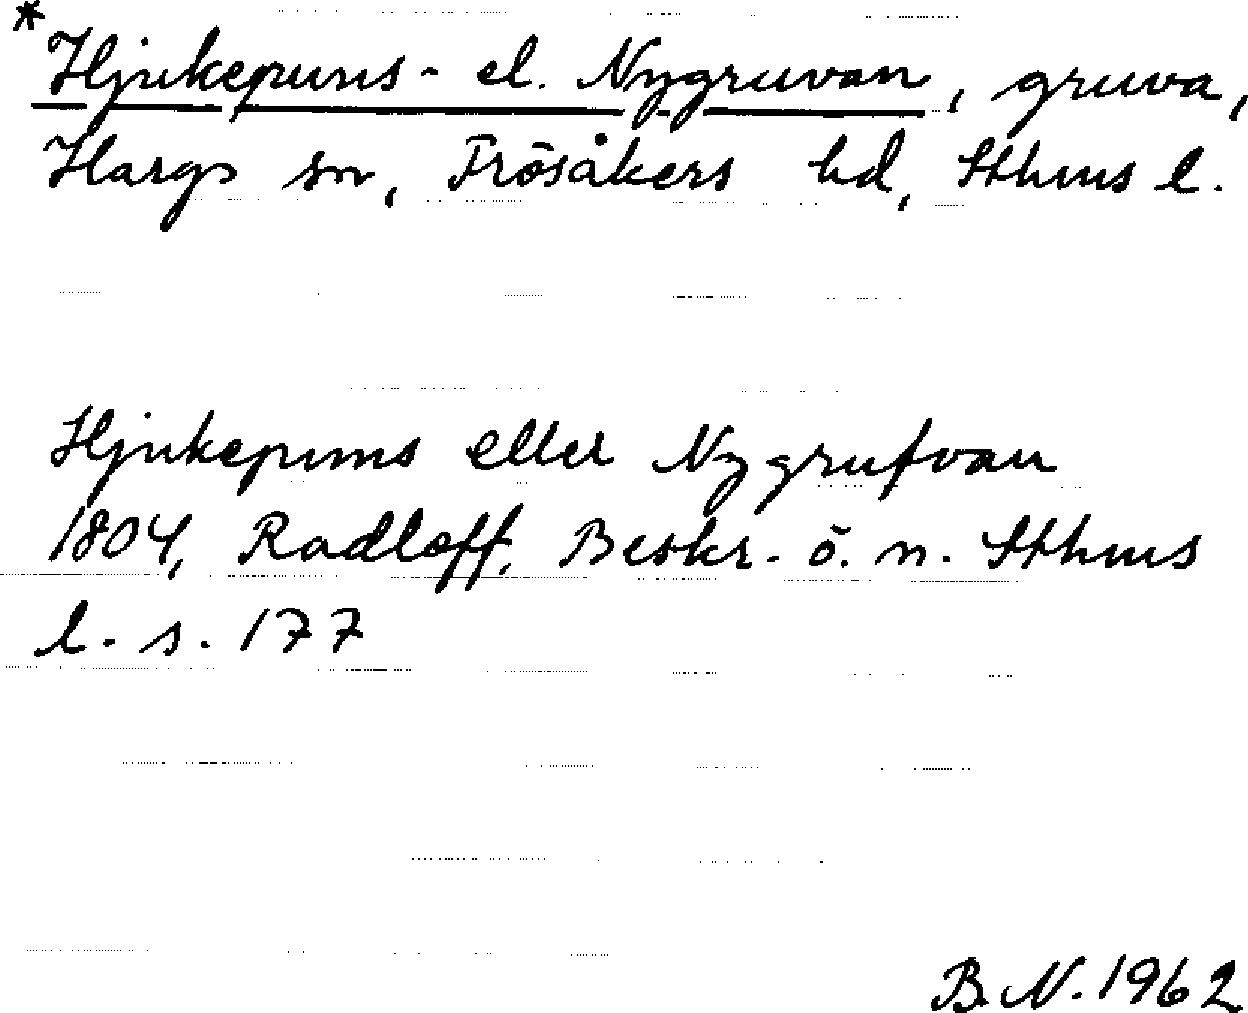 *Hjukepuns- el. Nygruvan, gruva,
Hargs sn, Frösåkers hd, Sthms l.
Hjukepuns eller Nygrufvan
1804, Radloff, Beskr. ö. n. Sthms
l. s. 177
B.N. 1962